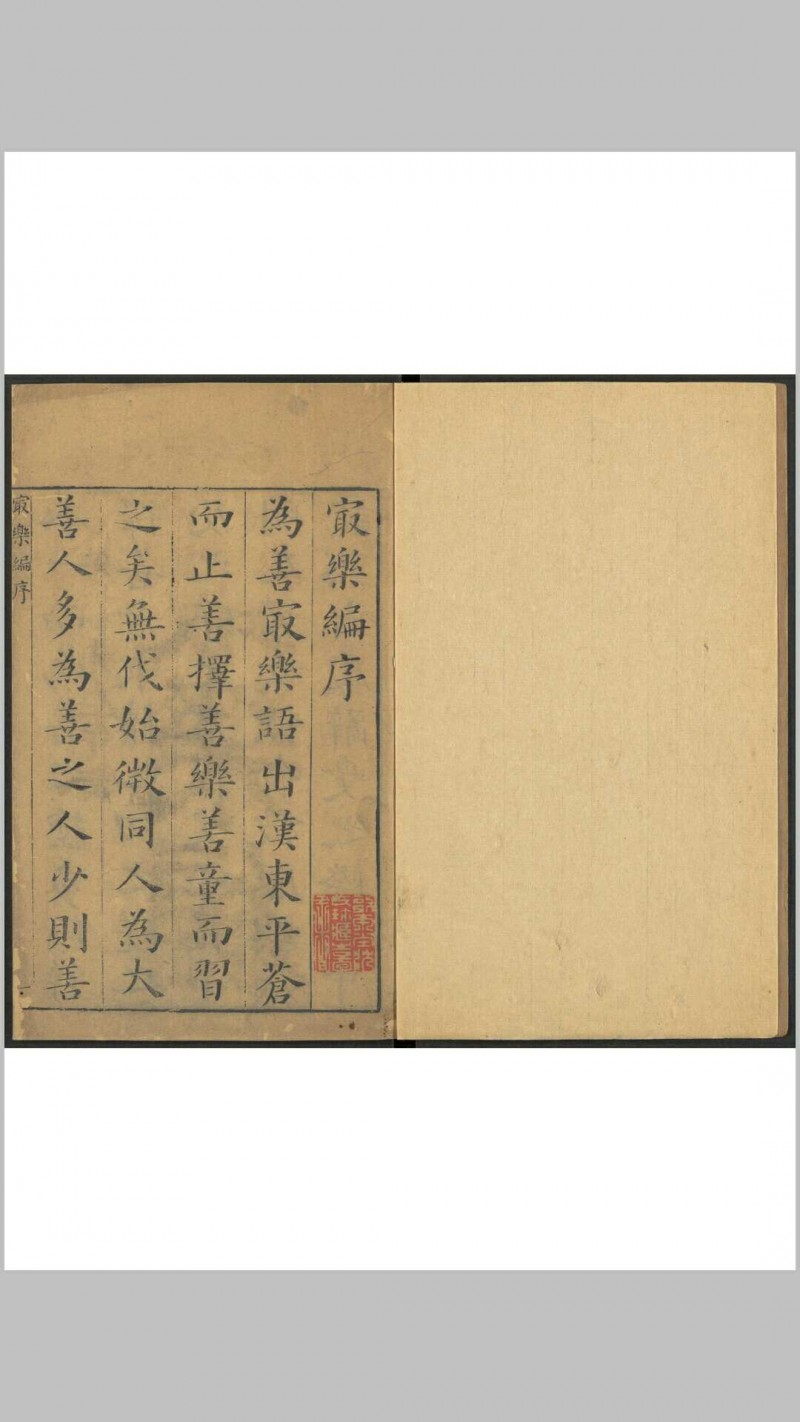 冣樂編序
為善冣樂語出漢東平蒼
而止善擇善樂善童而習
之矣無伐始微同人為大
善人多為善之人少則善
冣樂編序
一